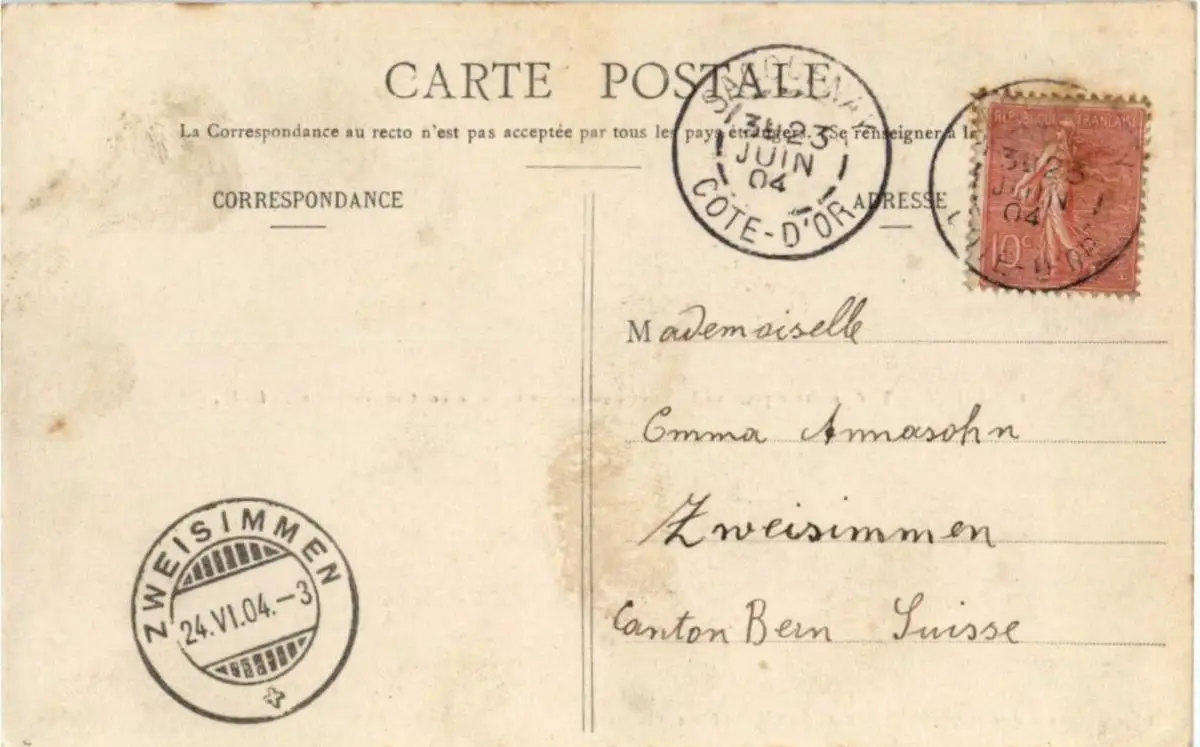 CARTE POSTALE
La Correspondance au recto n'est pas acceptée par tous les pays étrangers. Se renseigner à la
CORRESPONDANCE
ADRESSE
3H 23
JUIN
04
CÔTE-D'OR
REPUBLIQUE FRANÇAISE
10c
3H 23
JUIN
04
CÔTE-D'OR
Mademoiselle
Emma Annasohn
Zweisimmen
Canton Bern Suisse
ZWEISIMMEN
24.VI.04.-3